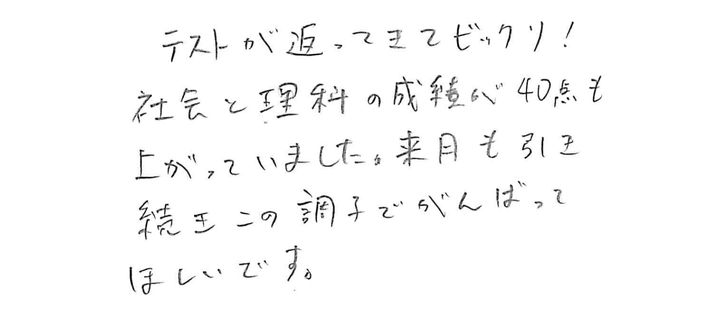 テストが返ってきてビックリ！
社会と理科の成績が40点も
上がっていました。来月も引き
続きこの調子でがんばって
ほしいです。